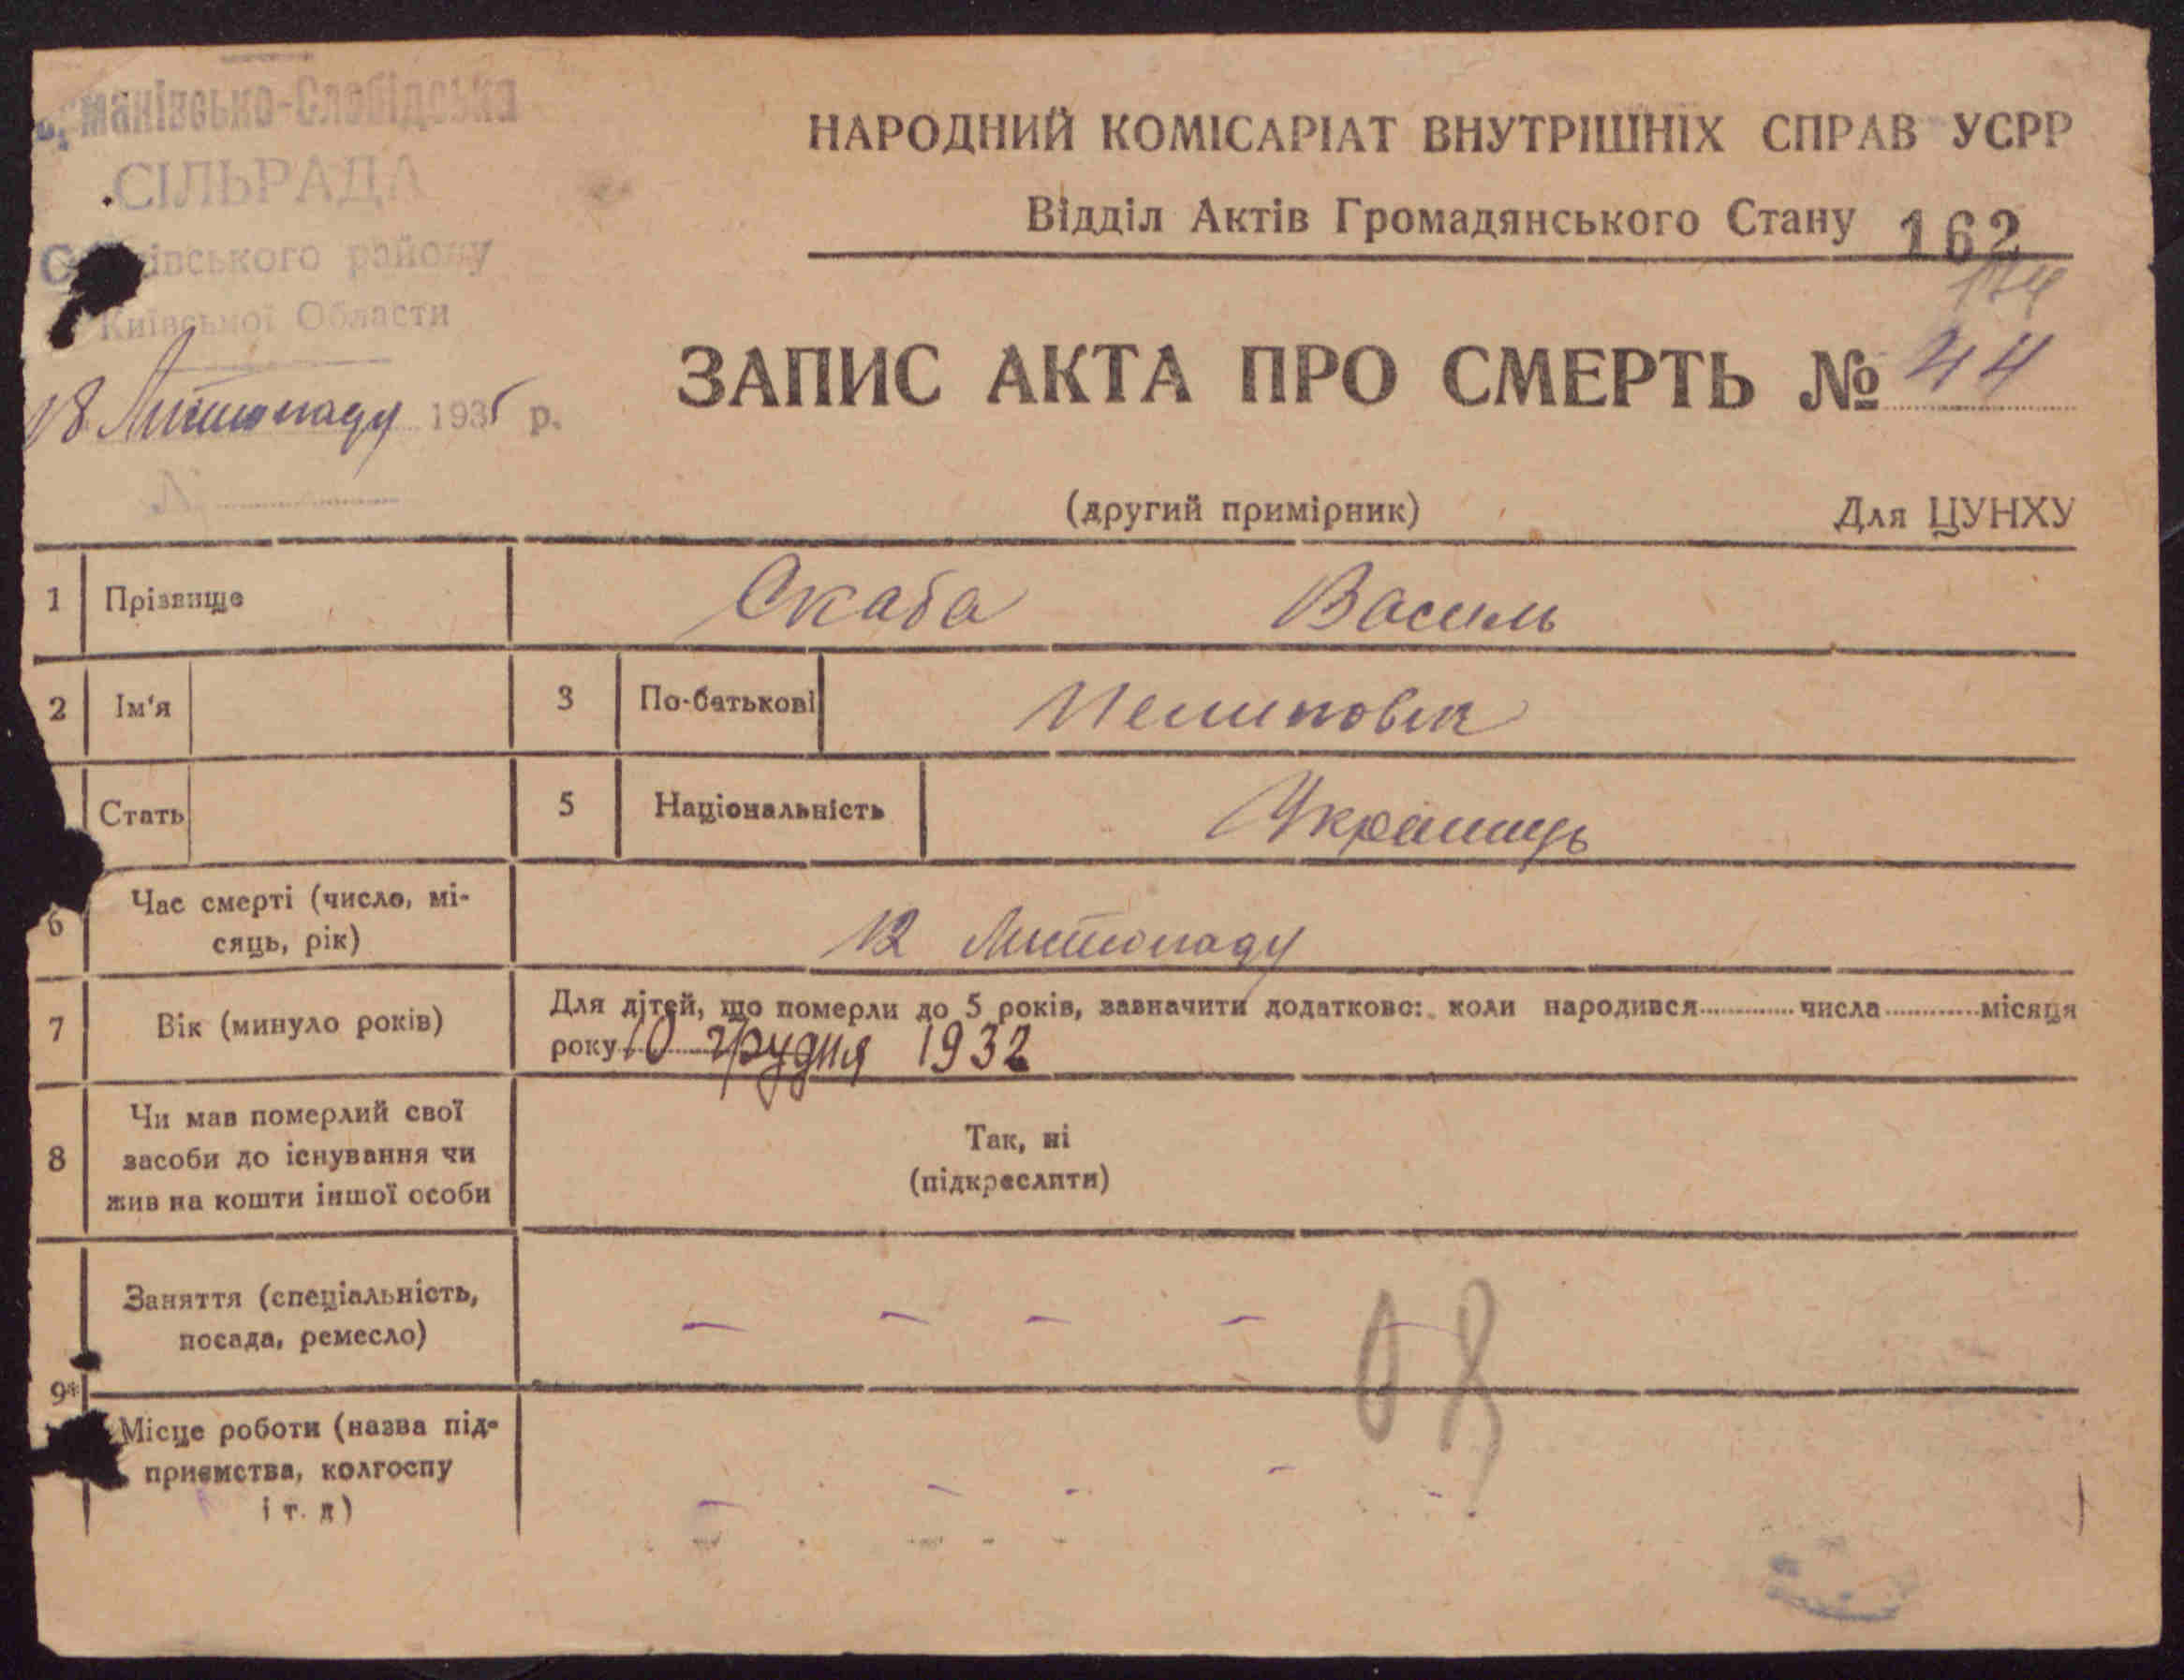 манівсько-Слобідська
СІЛЬРАДА
івського району
Київської Области
18 Листопаду 1935 р.
№
НАРОДНИЙ КОМІСАРІАТ ВНУТРІШНІХ СПРАВ УСРР
Відділ Актів Громадянського Стану 162
ЗАПИС АКТА ПРО СМЕРТЬ № 44
(другий примірник) Для ЦУНХУ
1 Прізвище Скаба Василь
2 Ім'я 3 По-батькові Пелипович
Стать 5 Національність Українець
6 Час смерті (число, мі-
сяць, рік) 12 Листопаду
7 Вік (минуло років) Для дітей, що померли до 5 років, зазначити додатково: коли народився числа місяця
року 10 грудня 1932
8 Чи мав померлий свої
засоби до існування чи
жив на кошти іншої особи
Так, ні
(підкреслити)
Заняття (спеціальність,
посада, ремесло) - - - - -
9
Місце роботи (назва під-
приємства, колгоспу
і т. д) - - - - -